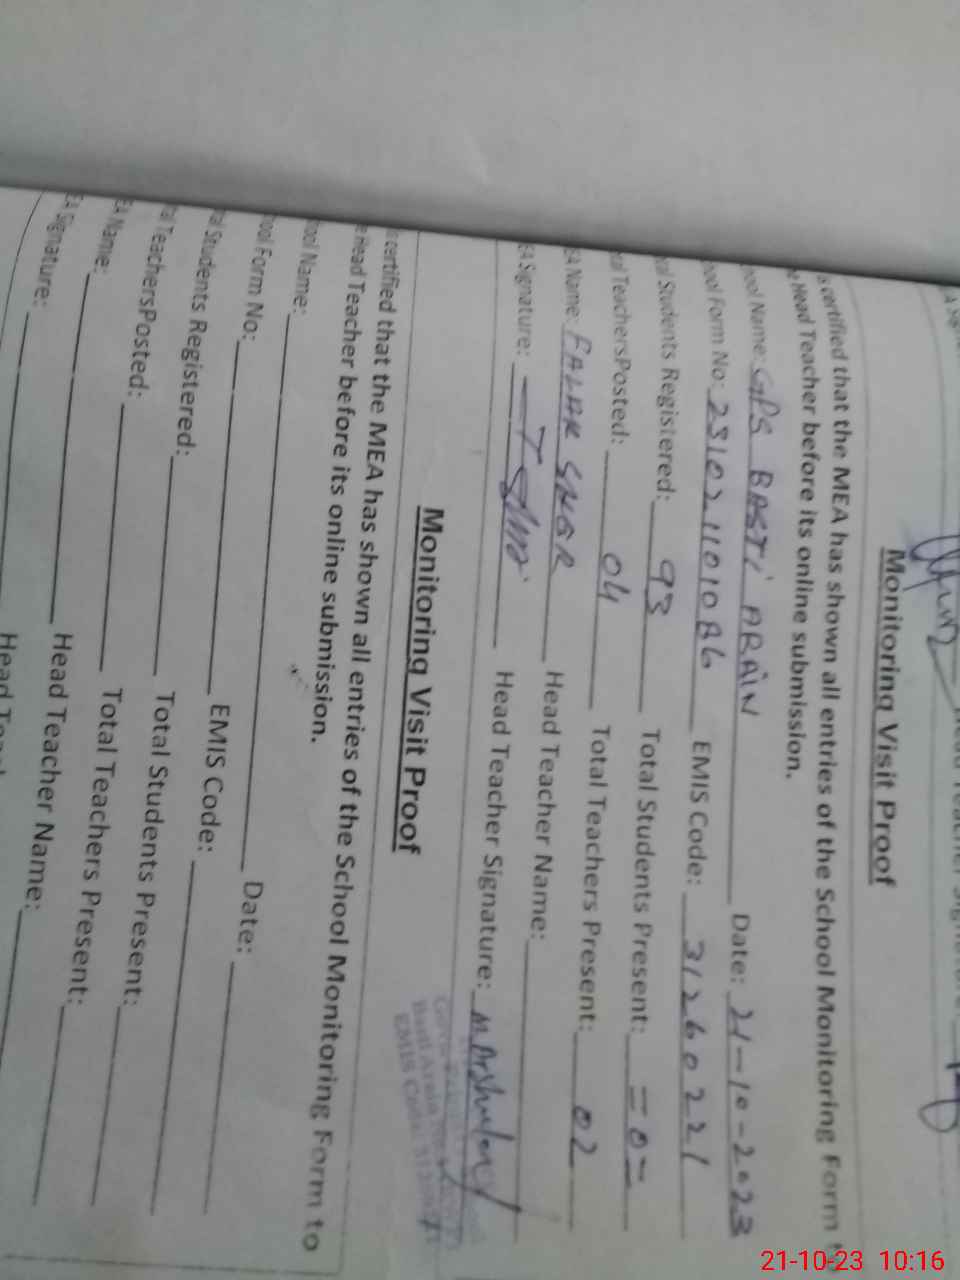 Monitoring Visit Proof
certified that the MEA has shown all entries of the School Monitoring Form
Head Teacher before its online submission.
ool Name: GPS BASTI ARAIN Date: 21-10-2023
ool Form No: 231021101086 EMIS Code: 31260221
al Students Registered: 93 Total Students Present: =0=
al TeachersPosted: 04 Total Teachers Present: 02
EA Name: FALAK Head Teacher Name:
EA Signature: Head Teacher Signature:
Basti Arain
EMIS Code:
Monitoring Visit Proof
certified that the MEA has shown all entries of the School Monitoring Form to
e Head Teacher before its online submission.
ool Name: Date:
ool Form No: EMIS Code:
al Students Registered: Total Students Present:
al TeachersPosted: Total Teachers Present:
EA Name: Head Teacher Name:
EA Signature: Head
21-10-23 10:16